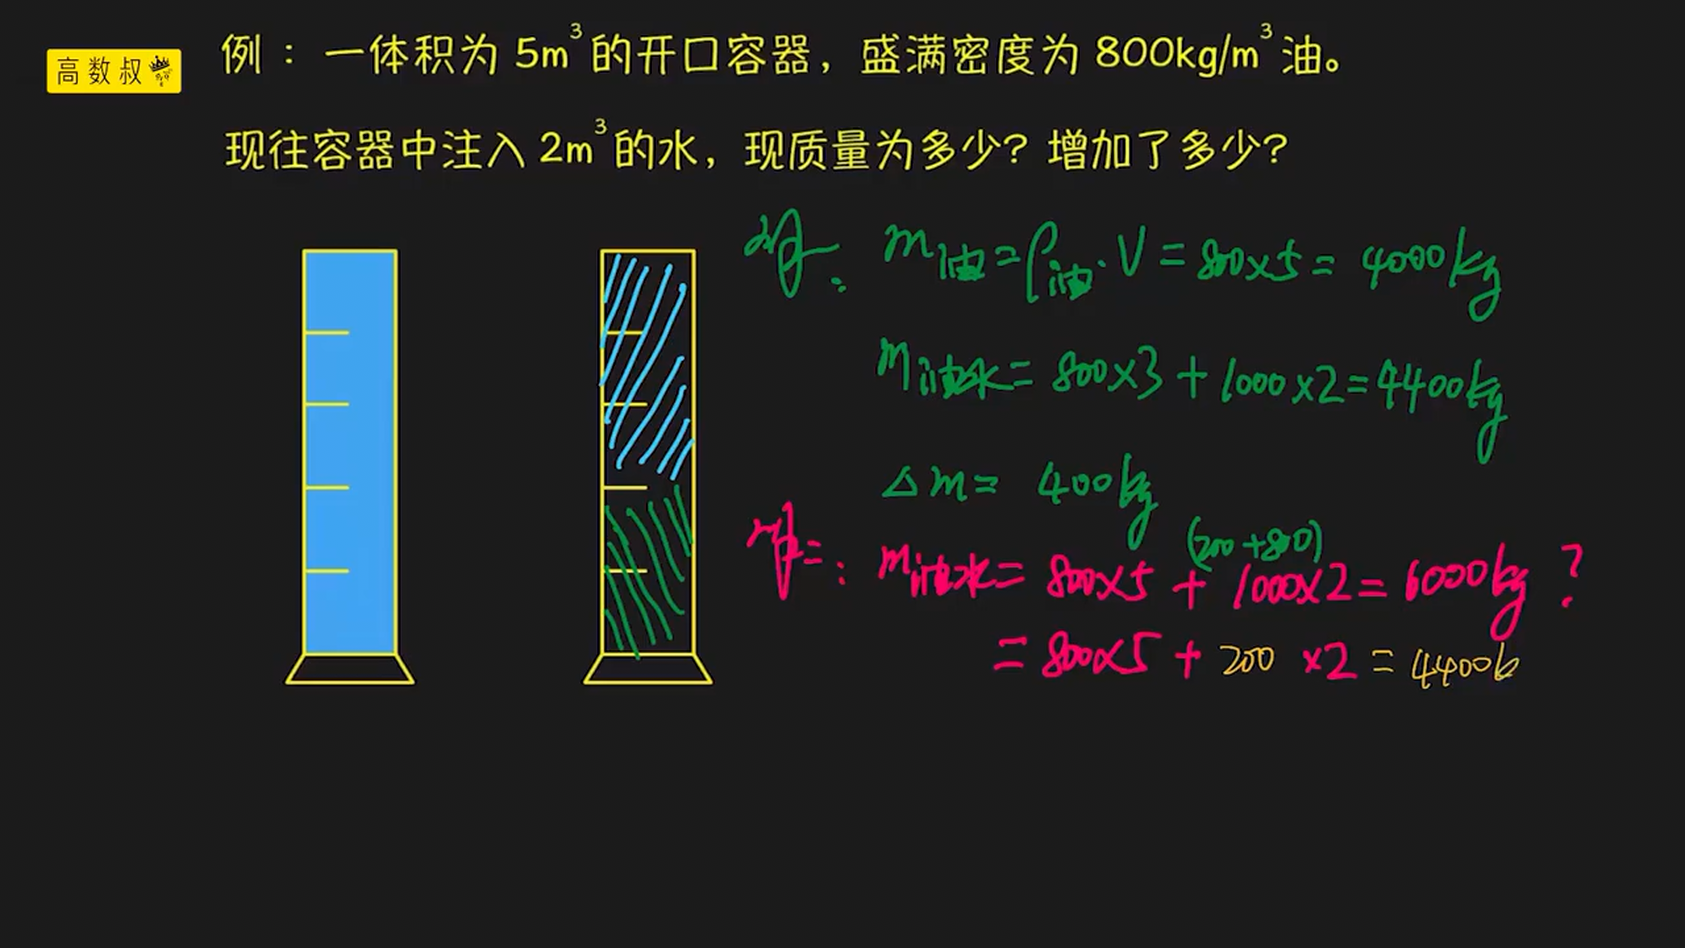 高数叔
例：一体积为 5m³的开口容器，盛满密度为 800kg/m³油。
现往容器中注入 2m³的水，现质量为多少？增加了多少？
解： m油=ρ油·V=800×5=4000kg
m油水=800×3+1000×2=4400kg
△m=400kg
(200+800)
解二： m油水=800×5+1000×2=6000kg ?
=800×5+200×2=4400k